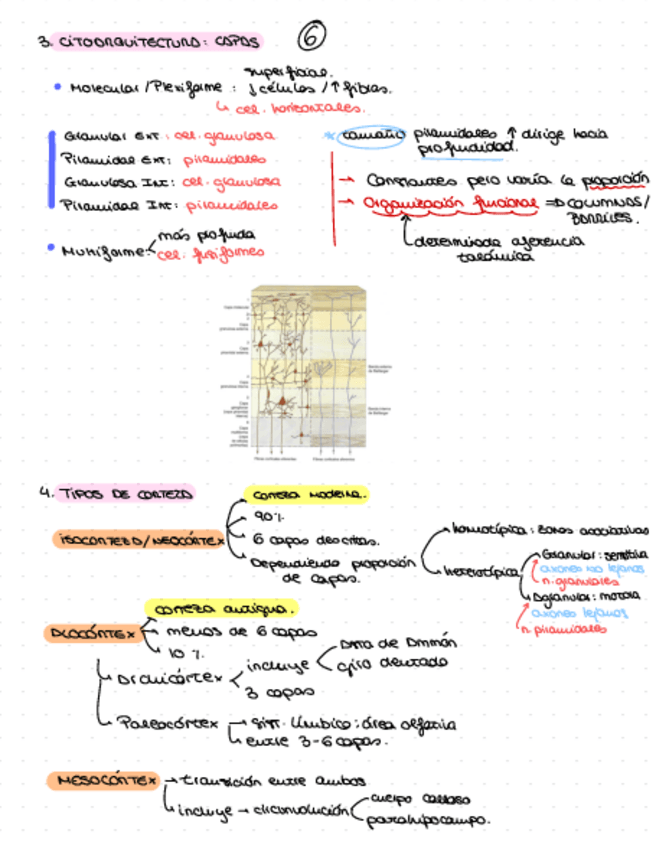 6
3. CITOARQUITECTURA: CAPAS
• Molecular / Plexiforme: superficial. ↓ células / ↑ fibras.
↳ cel. horizontales.
Granular Ext: cel. granulosa
Piramidal Ext: piramidales
Granulosa Int: cel. granulosa
Piramidal Int: piramidales
• Multiforme: más profunda
cel. fusiformes
* tamaño piramidales ↑ dirige hacia
profundidad.
→ Constantes pero varía la proporción
→ Organización funcional => COLUMNAS/
BARRILES.
determinada aferencia
talámica
4. TIPOS DE CORTEZA
ISOCORTEZA/NEOCÓRTEX
corteza moderna.
90%
6 capas descritas.
Dependiendo proporción
de capas.
homotípica: zonas asociativas
heterotípica
Granular: sensitiva
axones no lejanos
n. granulares
Agranular: motora
axones lejanos
n. piramidales
ALOCÓRTEX
corteza antigua.
menos de 6 capas
10%
Arquicórtex
incluye
Asta de Ammón
giro dentado
3 capas
Paleocórtex → sist. límbico: área olfatoria
↳ entre 3-6 capas.
MESOCÓRTEX → transición entre ambos
↳ incluye → circunvolución
cuerpo calloso
parahipocampo.